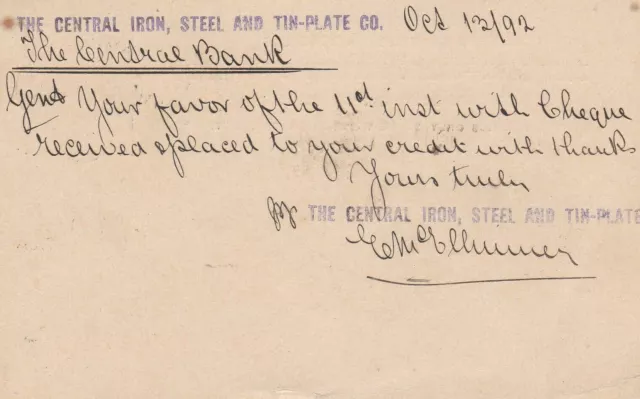 THE CENTRAL IRON, STEEL AND TIN-PLATE CO. Oct 12/92
The Central Bank
Gents Your favor of the 11th inst with Cheque
received & placed to your credit with thanks
Yours truly
pp THE CENTRAL IRON, STEEL AND TIN-PLATE